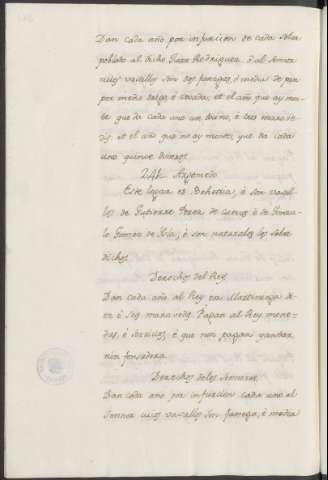 Dan cada año por infurcion de cada solar
poblado al dicho Juan Rodriguez, ó al Señor
cuios vasallos son dos fanegas, é media de pan
por medio trigo, é cevada, et el año que ay mon-
te que dá cada uno un tocino, é tres maravedis
et el año que no ay monte, que da cada
uno quince dineros.
24k Arguendo
Este logar es Behetria, é son vasal-
los de Gutierre Perez de é de Gonza-
lo Gomez de Isla, é son naturales los sobre
dichos.
Derechos del Rey
Dan cada año al Rey en Martiniega
é Seis maravedis. Pagan al Rey mone-
das, é servicios, é que non pagan yantar
nin fonsadera.
Derechos delos Señores
Dan cada año por infurcion cada uno al
Sennor cuios vasallos son fanega, é media